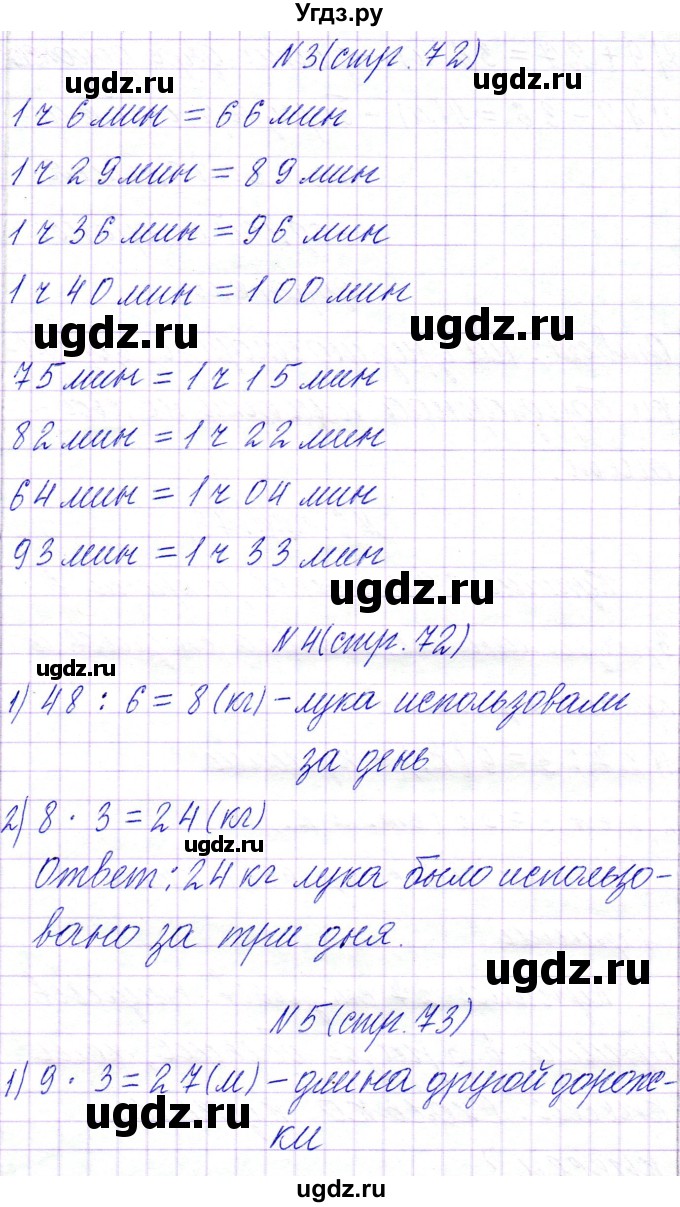 Угдз.ру
N3(стр. 72)
ugdz.ru
1ч 6мин = 66мин
1ч 29мин = 89мин
ugdz.ru
1ч 36мин = 96мин
1ч 40мин = 100мин
ugdz.ru ugdz.ru
75мин = 1ч 15мин
82мин = 1ч 22мин
64мин = 1ч 04мин
93мин = 1ч 33мин
ugdz.ru
N4(стр. 72)
ugdz.ru
1) 48 : 6 = 8(кг) – лука использовали
за день
2) 8 · 3 = 24(кг)
ugdz.ru
Ответ: 24кг лука было использо-
вано за три дня.
ugdz.ru
N5(стр. 73)
1) 9 · 3 = 27(м) – длина другой дорож-
ugdz.ru
ки
ugdz.ru